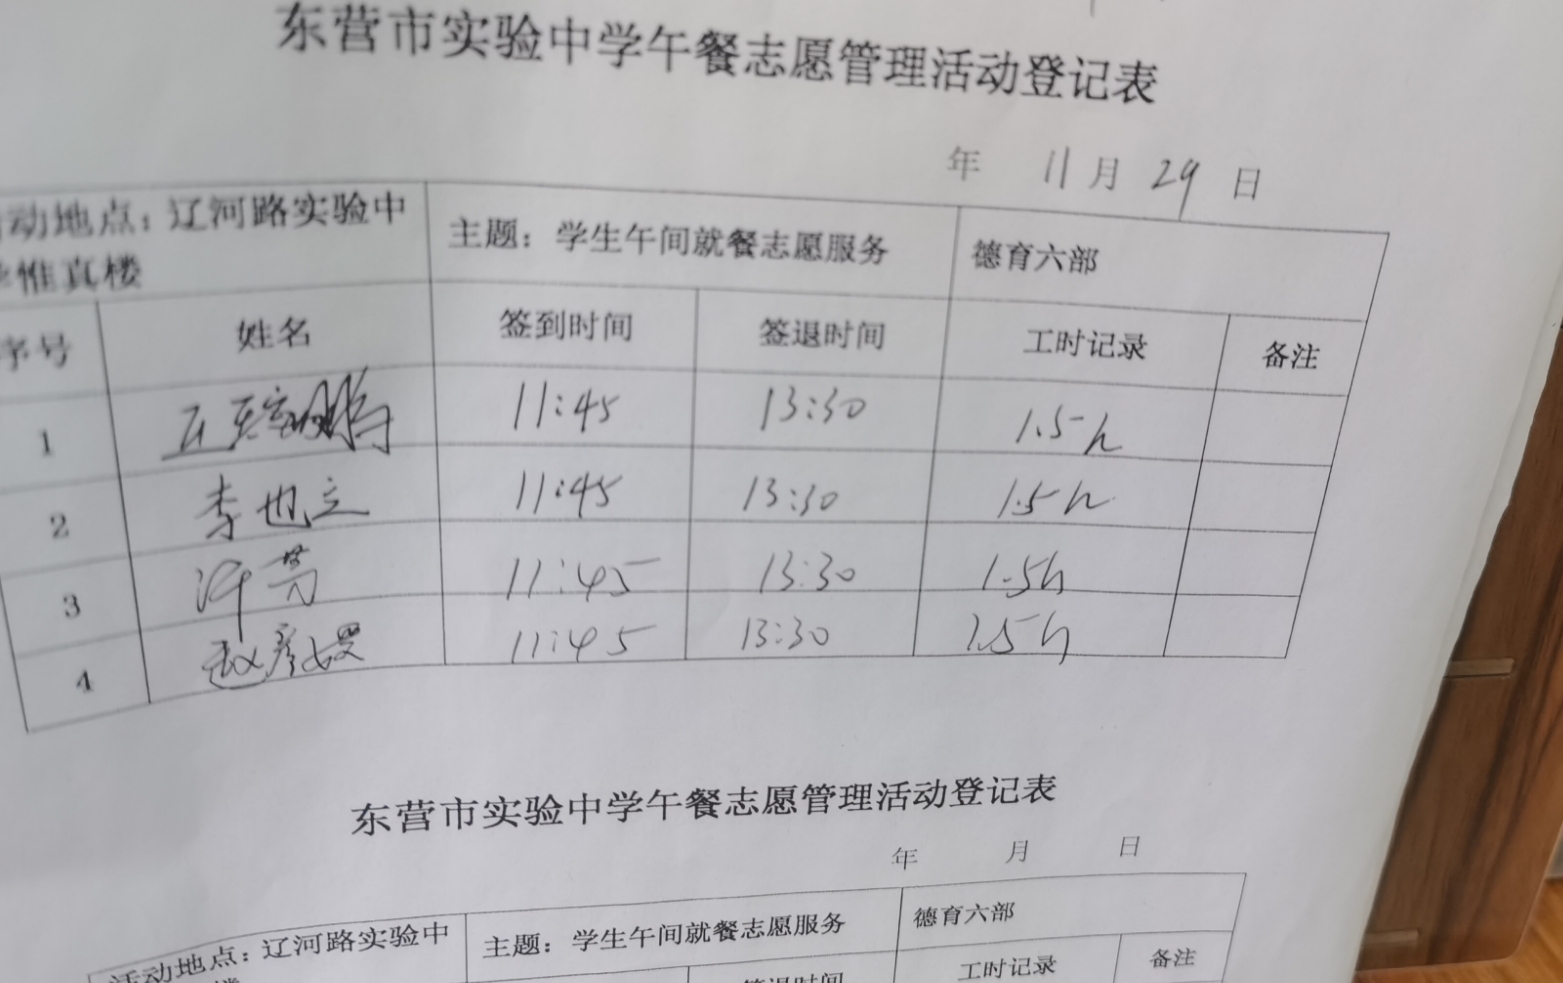 东营市实验中学午餐志愿管理活动登记表
年 11月29日
动地点：辽河路实验中 主题：学生午间就餐志愿服务 德育六部
惟真楼
序号 姓名 签到时间 签退时间 工时记录 备注
1 11:45 13:30 1.5h
2 李也立 11:45 13:30 1.5h
3 许 11:45 13:30 1.5h
4 赵彦 11:45 13:30 1.5h
东营市实验中学午餐志愿管理活动登记表
年 月 日
活动地点：辽河路实验中 主题：学生午间就餐志愿服务 德育六部
楼 签退时间 工时记录 备注